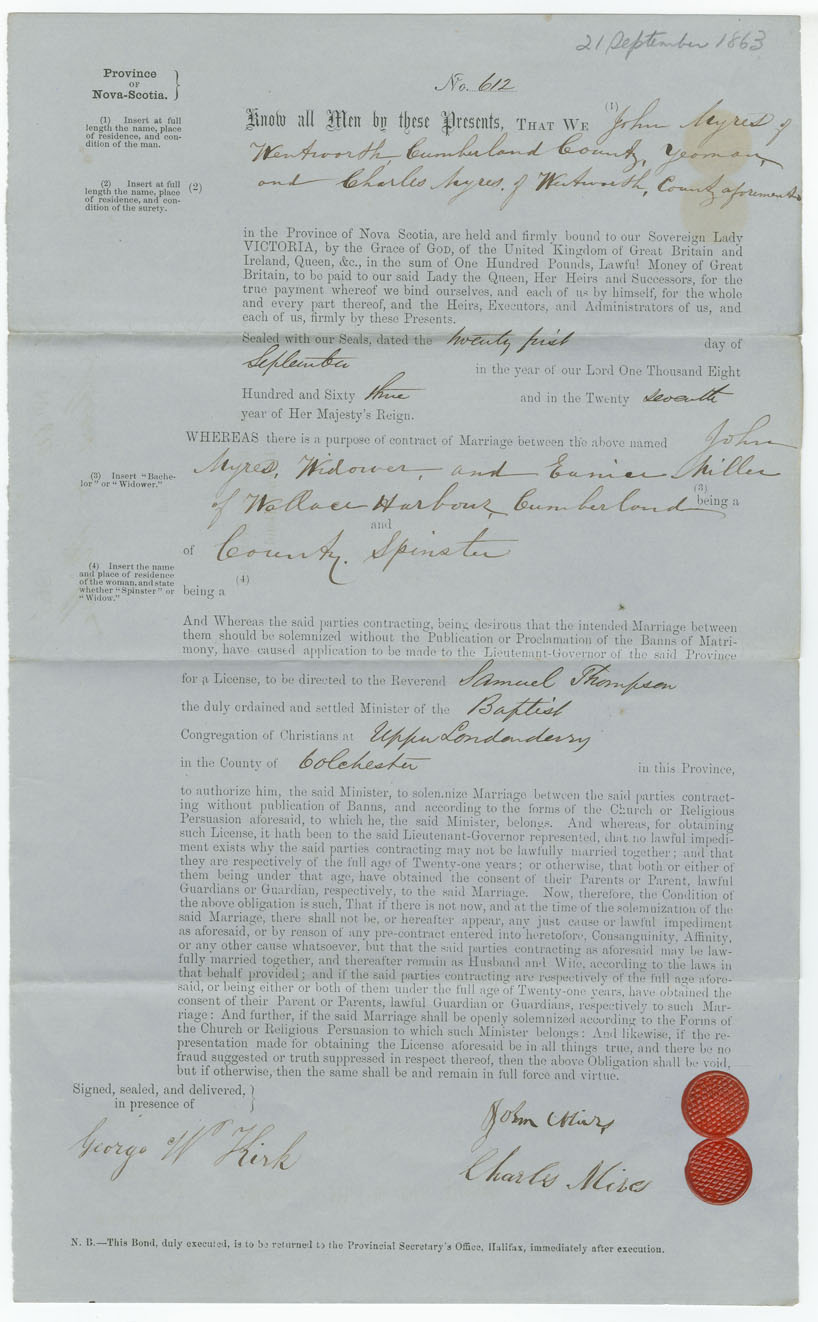 21 September 1863
Province
OF
Nova-Scotia.
No. 612
(1) Insert at full
length the name, place
of residence, and con-
dition of the man.
Know all Men by these Presents, THAT WE (1) John Myres of
Wentworth Cumberland County, Yeoman,
(2) Insert at full
length the name, place
of residence, and con-
dition of the surety.
(2) and Charles Myres. of Wentworth, County aforementd
in the Province of Nova Scotia, are held and firmly bound to our Sovereign Lady
VICTORIA, by the Grace of GOD, of the United Kingdom of Great Britain and
Ireland, Queen, &c., in the sum of One Hundred Pounds, Lawful Money of Great
Britain, to be paid to our said Lady the Queen, Her Heirs and Successors, for the
true payment whereof we bind ourselves, and each of us by himself, for the whole
and every part thereof, and the Heirs, Executors, and Administrators of us, and
each of us, firmly by these Presents.
Sealed with our Seals, dated the twenty first day of
September in the year of our Lord One Thousand Eight
Hundred and Sixty three and in the Twenty seventh
year of Her Majesty's Reign.
WHEREAS there is a purpose of contract of Marriage between the above named John
(3) Insert "Bache-
lor" or "Widower."
Myres, Widower, and Eunice Miller
of Wallace Harbour, Cumberland (3) being a
and
of County. Spinster
(4) Insert the name
and place of residence
of the woman, and state
whether "Spinster" or
"Widow."
(4)
being a
And Whereas the said parties contracting, being desirous that the intended Marriage between
them should be solemnized without the Publication or Proclamation of the Banns of Matri-
mony, have caused application to be made to the Lieutenant-Governor of the said Province
for a License, to be directed to the Reverend Samuel Thompson
the duly ordained and settled Minister of the Baptist
Congregation of Christians at Upper Londonderry
in the County of Colchester in this Province,
to authorize him, the said Minister, to solemnize Marriage between the said parties contract-
ing without publication of Banns, and according to the forms of the Church or Religious
Persuasion aforesaid, to which he, the said Minister, belongs. And whereas, for obtaining
such License, it hath been to the said Lieutenant-Governor represented, that no lawful impedi-
ment exists why the said parties contracting may not be lawfully married together; and that
they are respectively of the full age of Twenty-one years; or otherwise, that both or either of
them being under that age, have obtained the consent of their Parents or Parent, lawful
Guardians or Guardian, respectively, to the said Marriage. Now, therefore, the Condition of
the above obligation is such, That if there is not now, and at the time of the solemnization of the
said Marriage, there shall not be, or hereafter appear, any just cause or lawful impediment
as aforesaid, or by reason of any pre-contract entered into heretofore, Consanguinity, Affinity,
or any other cause whatsoever, but that the said parties contracting as aforesaid may be law-
fully married together, and thereafter remain as Husband and Wife, according to the laws in
that behalf provided; and if the said parties contracting are respectively of the full age afore-
said, or being either or both of them under the full age of Twenty-one years, have obtained the
consent of their Parent or Parents, lawful Guardian or Guardians, respectively to such Mar-
riage: And further, if the said Marriage shall be openly solemnized according to the Forms of
the Church or Religious Persuasion to which such Minister belongs: And likewise, if the re-
presentation made for obtaining the License aforesaid be in all things true, and there be no
fraud suggested or truth suppressed in respect thereof, then the above Obligation shall be void,
but if otherwise, then the same shall be and remain in full force and virtue.
Signed, sealed, and delivered,
in presence of
John Mires
George W Kirk
Charles Mires
N. B.—This Bond, duly executed, is to be returned to the Provincial Secretary's Office, Halifax, immediately after execution.